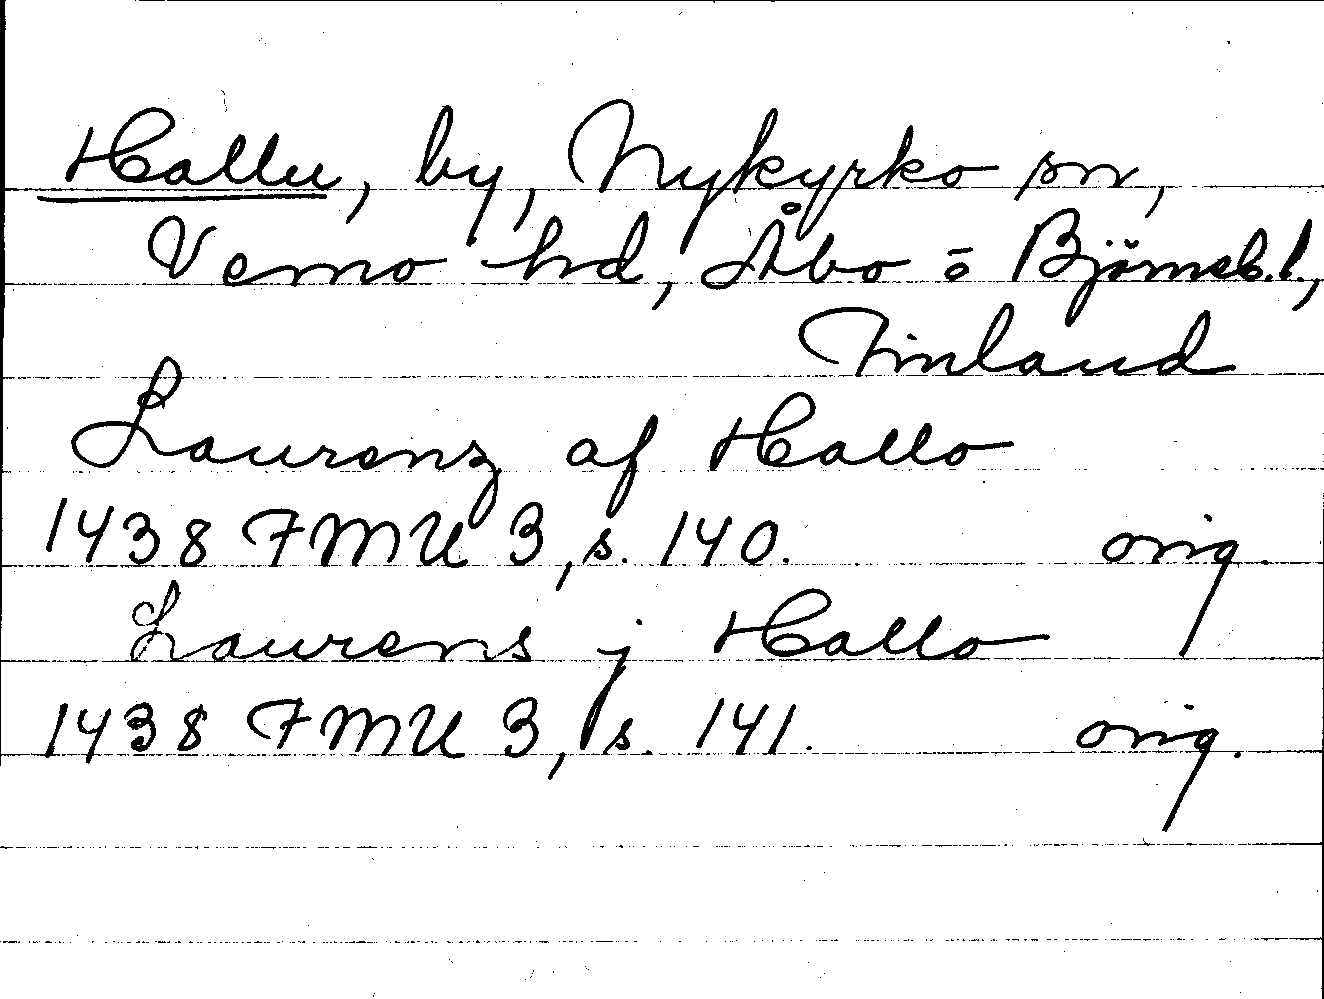 Hallu, by, Nykyrko sn,
Vemo hd, Åbo o Björneb. l.,
Finland
Laurenz af Hallo
1438 FMU 3, s. 140. orig.
Laurens j Hallo
1438 FMU 3, s. 141. orig.